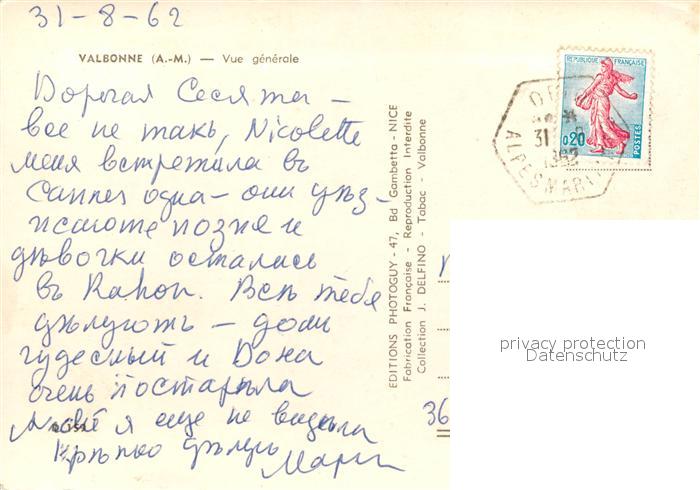 31-8-62
VALBONNE (A.-M.) — Vue générale
Дорогая
все не такъ, Nicolette
меня встретила въ
Cannes одна — они уѣз-
позже и
дѣвочки остались
въ Всѣ тебя
цѣлуютъ — домъ
чудесный и
очень постарѣла
я еще не видѣла
Крѣпко цѣлую
EDITIONS PHOTOGUY - 47, Bd Gambetta - NICE
Fabrication Française - Reproduction Interdite
Collection J. DELFINO - Tabac - Valbonne
REPUBLIQUE FRANÇAISE
0,20
POSTES
31
1962
ALPES MARIT
36
privacy protection
Datenschutz